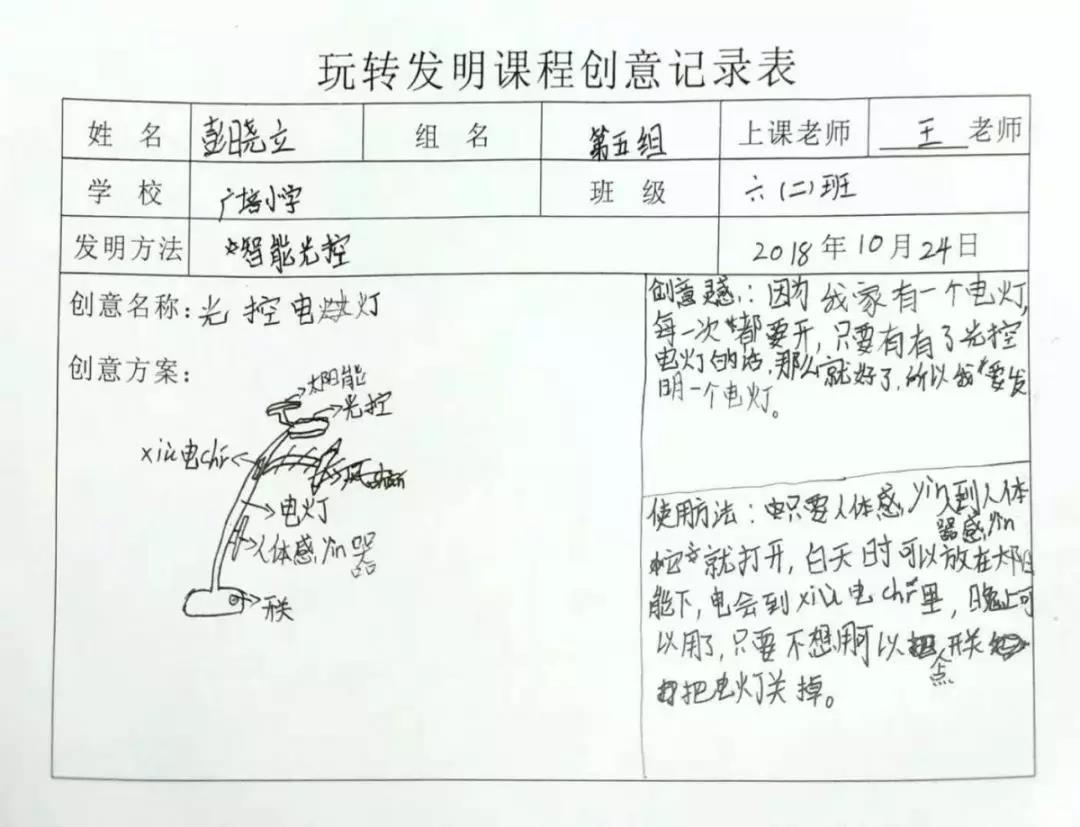 玩转发明课程创意记录表
姓 名 彭晓立 组 名 第五组 上课老师 王 老师
学 校 广培小学 班 级 六(二)班
发明方法 智能光控 2018年10月24日
创意名称：光控电灯
创意方案：
太阳能
光控
xiù电chí
电灯
人体感yìn器
开关
创意灵感：因为我家有一个电灯，
每一次都要开，只要有有了光控
电灯的话，那么就好了，所以我要发
明一个电灯。
使用方法：只要人体感yìn到人体
器感yìn
就打开，白天时可以放在太阳
能下，电会到xiù电chí里，晚上可
以用了，只要不想用可以点开关
把电灯关掉。